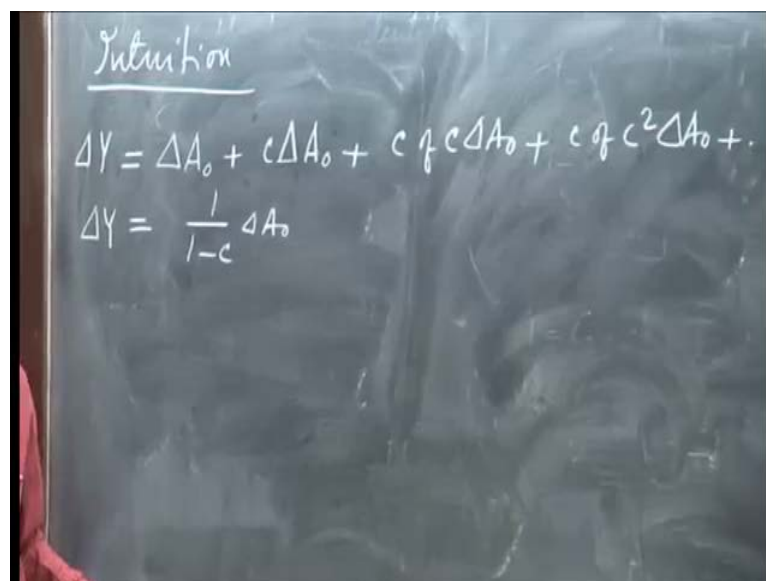 Intuition
ΔY = ΔA₀ + cΔA₀ + c of cΔA₀ + c of c²ΔA₀ + .
ΔY = 1/1-c ΔA₀